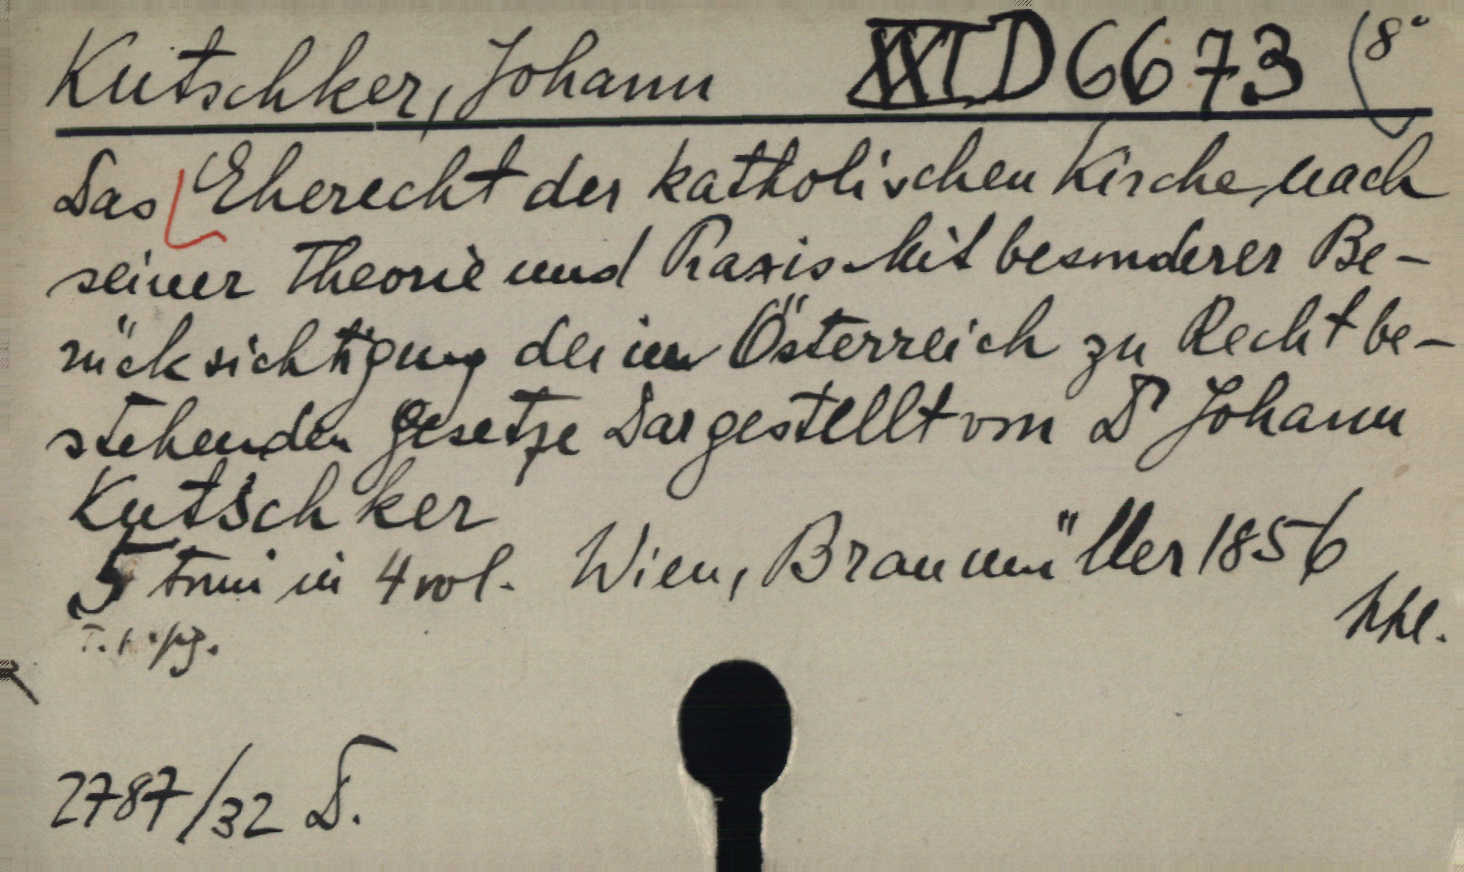 Kutschker, Johann XXI D 6673 (8°
Das Eherecht der katholischen Kirche nach
seiner Theorie und Praxis Mit besonderer Be-
rücksichtigung der in Österreich zu Recht be-
stehenden Gesetze Dargestellt von Dr Johann
Kutschker
5 tomi in 4 vol. Wien, Braumüller 1856
hhl.
2787/32 D.